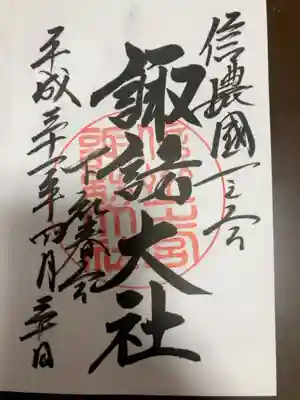 信濃國一之宮
諏訪大社
下社春宮
平成三十一年四月三十日